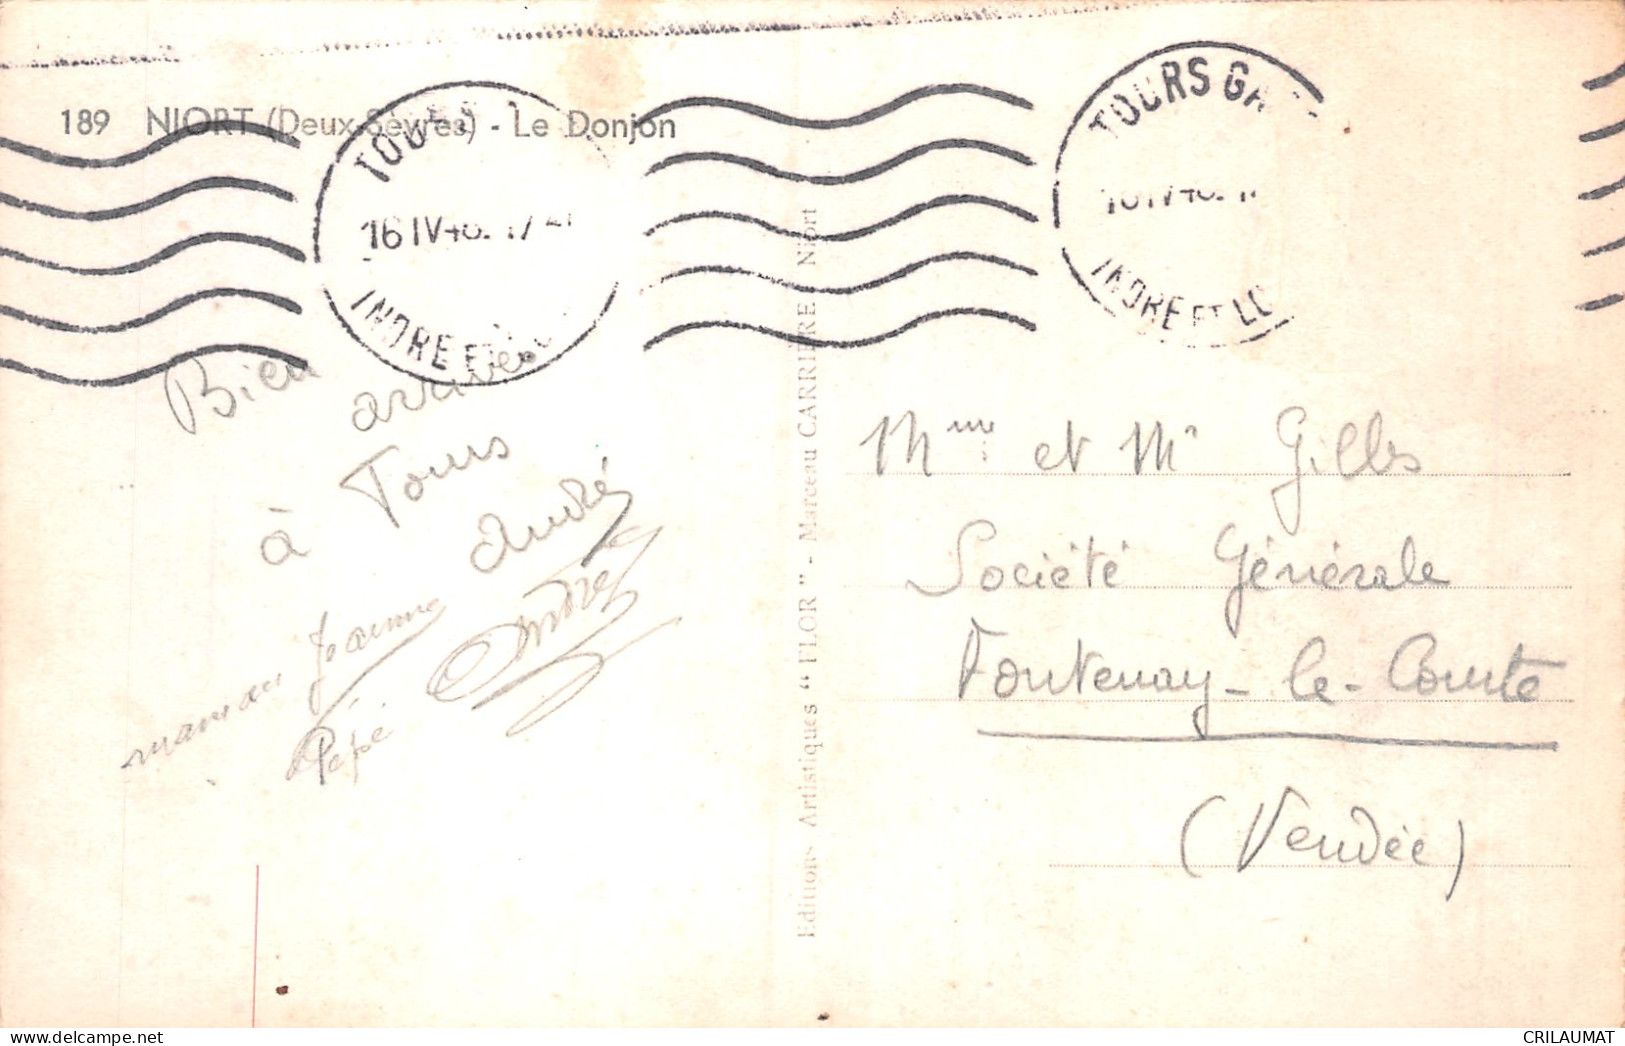 189 NIORT (Deux-Sèvres) - Le Donjon
TOURS
16 IV 48. 17
INDRE ET
TOURS GA
INDRE ET LO
Bien
arrivés
à Tours
André
maman Jeanne
Pépé André
Editions Artistiques "FLOR" - Marceau CARRIÈRE Niort
Mme et Mr Gilles
Société Générale
Fontenay-le-Comte
(Vendée)
CRILAUMAT